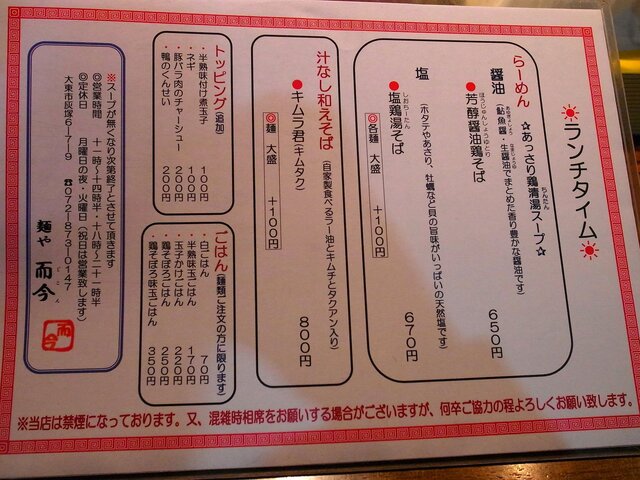 ランチタイム
らーめん ☆あっさり鶏清湯スープ☆
醤油 (鮎魚醤・生醤油でまとめた香り豊かな醤油です)
●芳醇醤油鶏そば 650円
塩 (ホタテやあさり、牡蠣など貝の旨味がいっぱいの天然塩です)
●塩鶏湯そば 670円
◎各麺 大盛 +100円
汁なし和えそば (自家製食べるラー油とキムチとタクアン入り)
●キムラ君(キムタク) 800円
◎麺 大盛 +100円
トッピング(追加)
・半熟味付け煮玉子 100円
・ネギ 100円
・豚バラ肉のチャーシュー 200円
・鴨のくんせい 200円
ごはん(麺類ご注文の方に限ります)
・白ごはん 70円
・半熟味玉ごはん 170円
・玉子かけごはん 220円
・鶏そぼろごはん 250円
・鶏そぼろ味玉ごはん 350円
※スープが無くなり次第終了とさせて頂きます
◎営業時間 十一時〜十四時半・十八時〜二十一時半
◎定休日 月曜日の夜・火曜日(祝日は営業致します)
大東市灰塚6-7-9 ☎072-873-0147
麺や 而今
而今
※当店は禁煙になっております。又、混雑時相席をお願いする場合がございますが、何卒ご協力の程よろしくお願い致します。